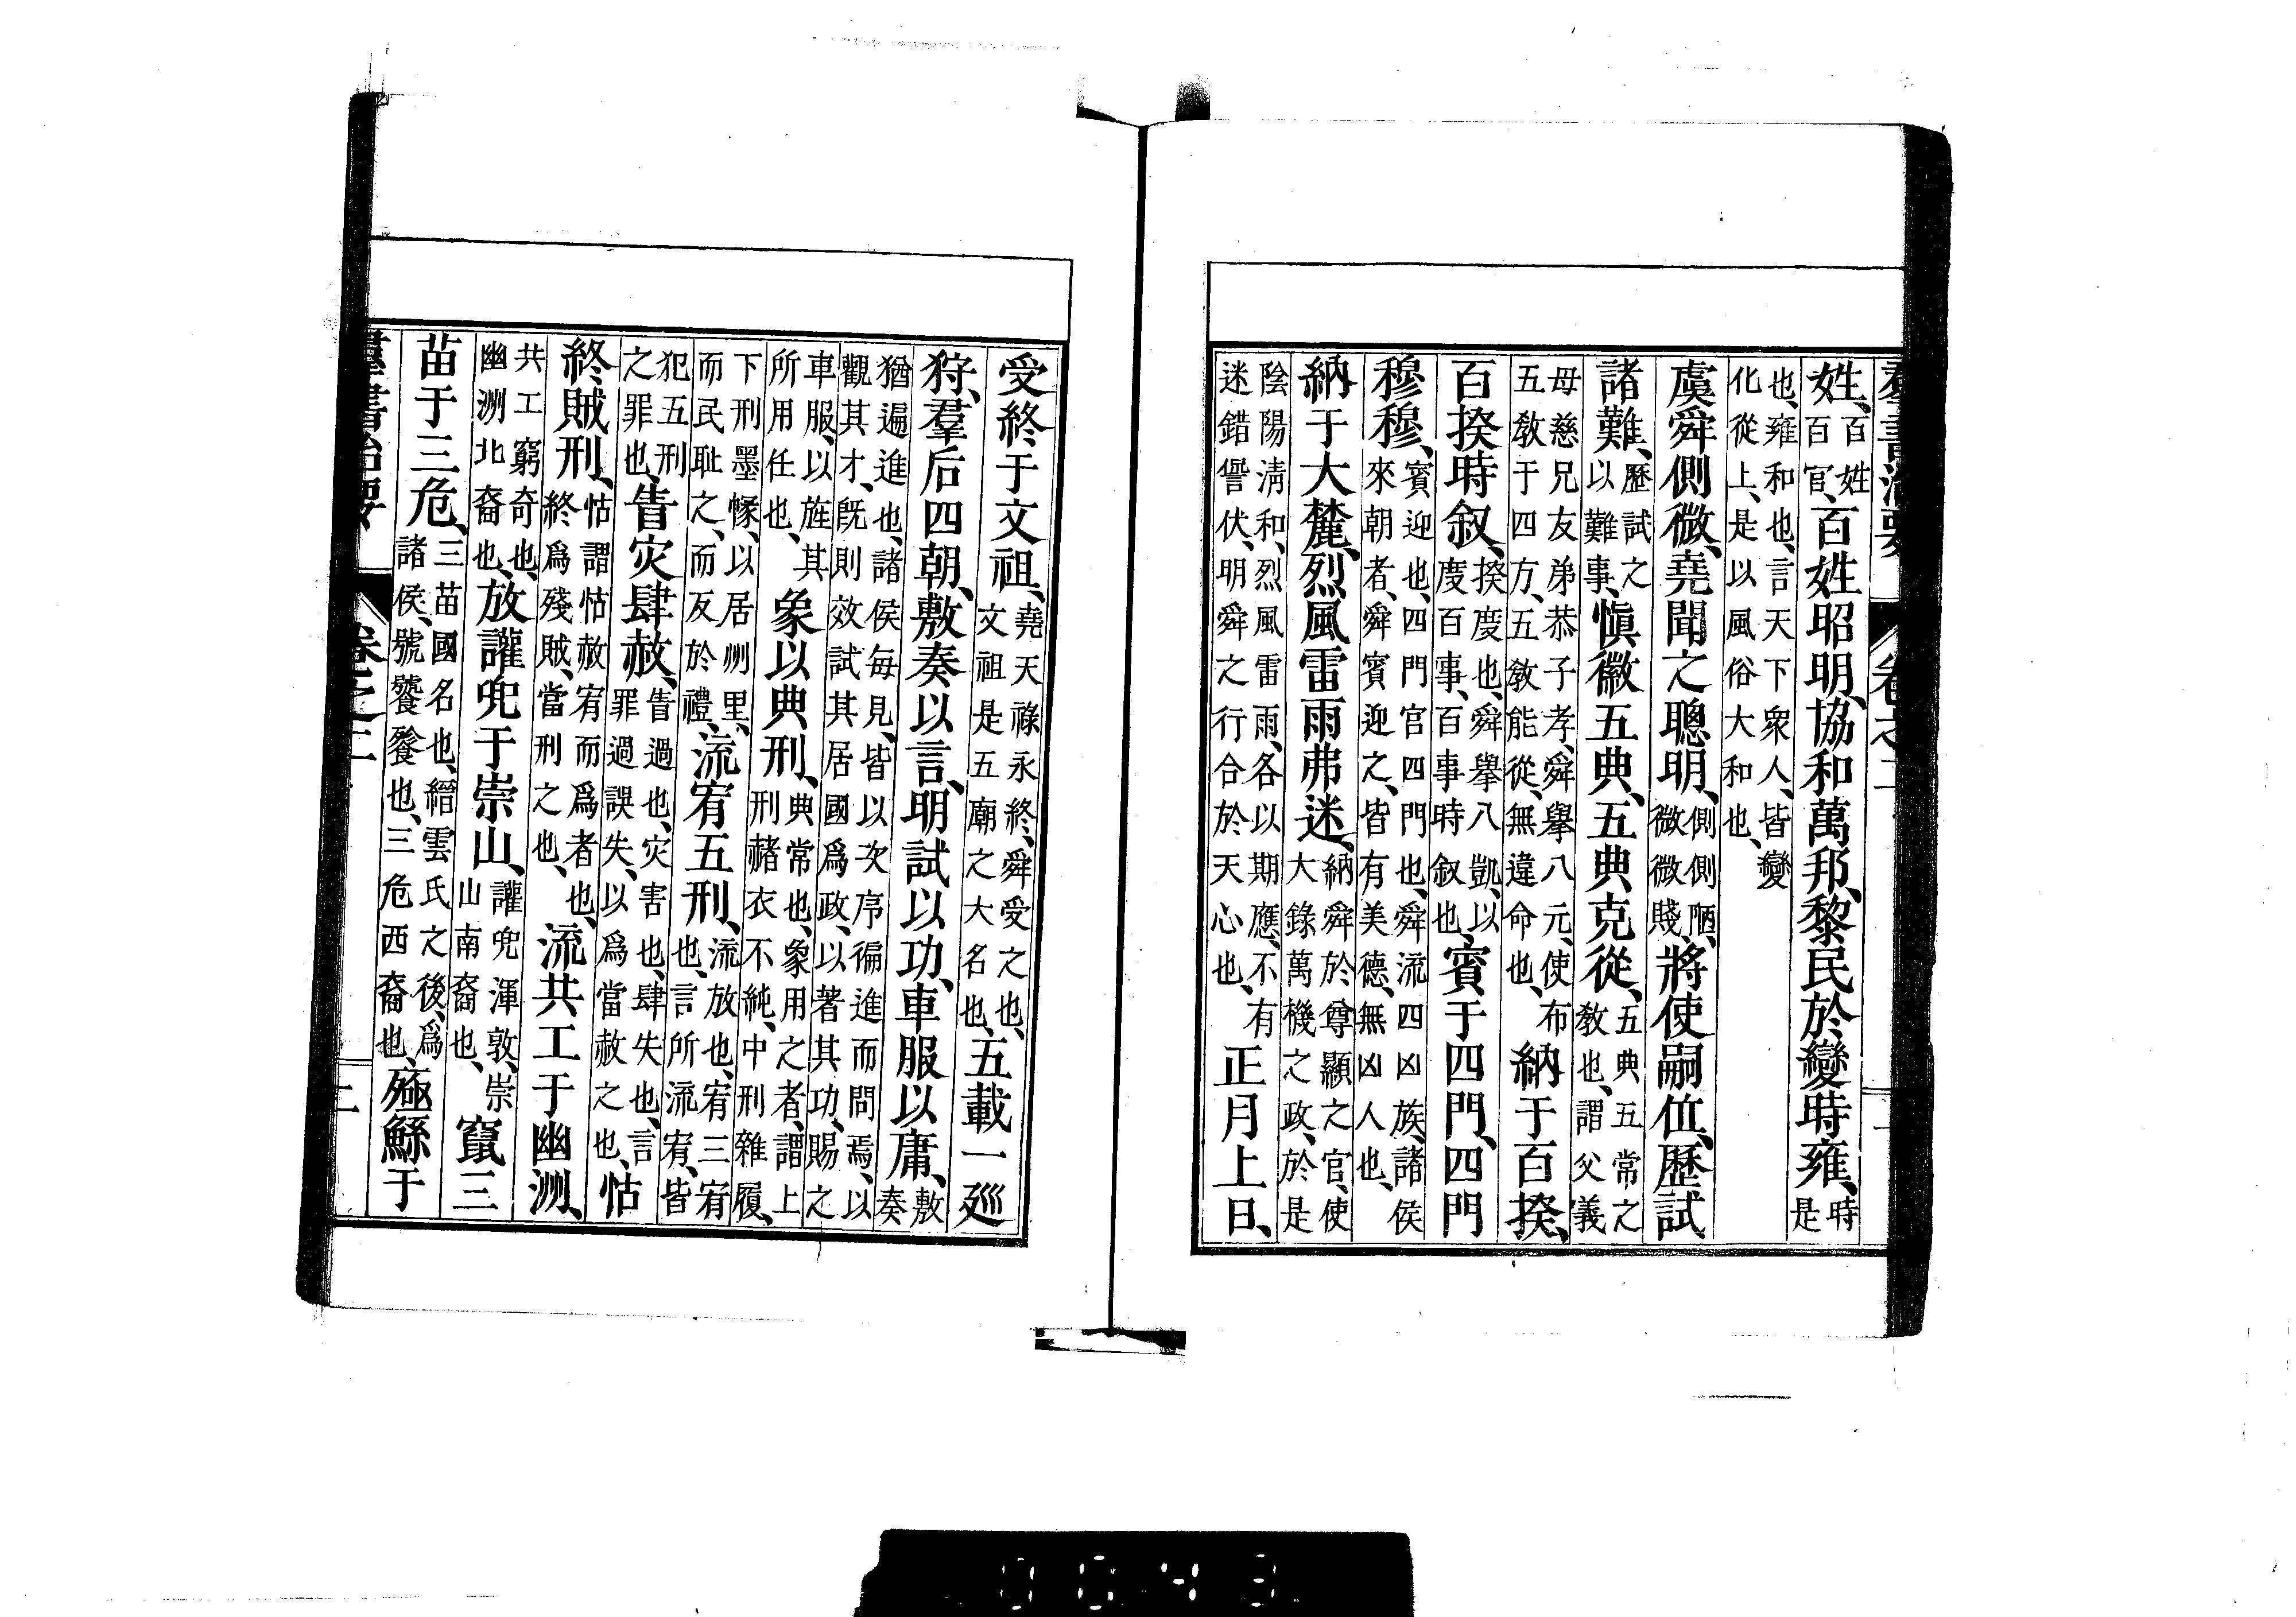 羣書治要 卷之二
姓、百姓百官、百姓昭明、協和萬邦、黎民於變時雍、時是
也、雍和也、言天下衆人、皆變化從上、是以風俗大和也、
虞舜側微、堯聞之聰明、側側陋、微微賤、將使嗣位、歷試
諸難、歷試之以難事、愼徽五典、五典克從、五典五常之教也、謂父義
母慈兄友弟恭子孝、舜舉八元、使布五敎于四方、五敎能從、無違命也、納于百揆、
百揆時叙、揆度也、舜舉八凱、以度百事、百事時叙也、賓于四門、四門
穆穆、賓迎也、四門宮四門也、舜流四凶族、諸侯來朝者、舜賓迎之、皆有美德、無凶人也、
納于大麓、烈風雷雨弗迷、納舜於尊顯之官、使大錄萬機之政、於是
陰陽淸和、烈風雷雨、各以期應、不有迷錯愆伏、明舜之行合於天心也、正月上日、
受終于文祖、堯天祿永終、舜受之也、文祖是五廟之大名也、五載一廵
狩、羣后四朝、敷奏以言、明試以功、車服以庸、敷奏
猶遍進也、諸侯每見、皆以次序徧進而問焉、以觀其才、旣則效試其居國爲政、以著其功、賜之
車服、以旌其所用任也、象以典刑、典常也、象用之者、謂上刑赭衣不純、中刑雜履、
下刑墨幪、以居洲里、而民耻之、而反於禮、流宥五刑、流放也、宥三宥也、言所流宥、皆
犯五刑之罪也、眚灾肆赦、眚過也、灾害也、肆失也、言罪過誤失、以爲當赦之也、怙
終賊刑、怙謂怙赦宥而爲者也、終爲殘賊、當刑之也、流共工于幽洲、
共工窮奇也、幽洲北裔也、放讙兜于崇山、讙兜渾敦、崇山南裔也、竄三
苗于三危、三苗國名也、縉雲氏之後、爲諸侯、號饕餮也、三危西裔也、殛鯀于
羣書治要 卷之二 二
0043